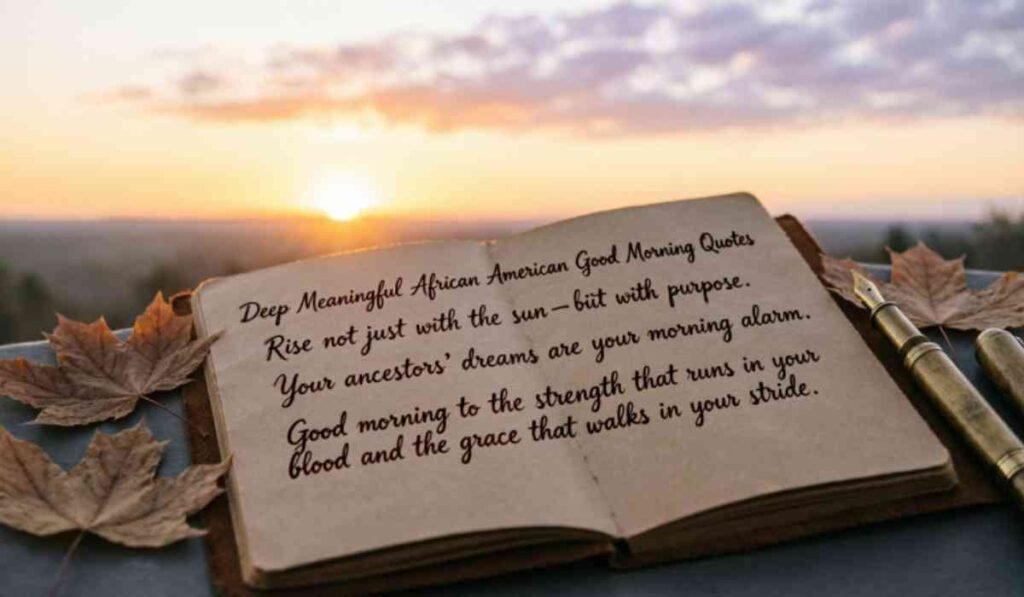 Deep Meaningful African American Good Morning Quotes
Rise not just with the sun—but with purpose.
Your ancestors' dreams are your morning alarm.
Good morning to the strength that runs in your
blood and the grace that walks in your stride.